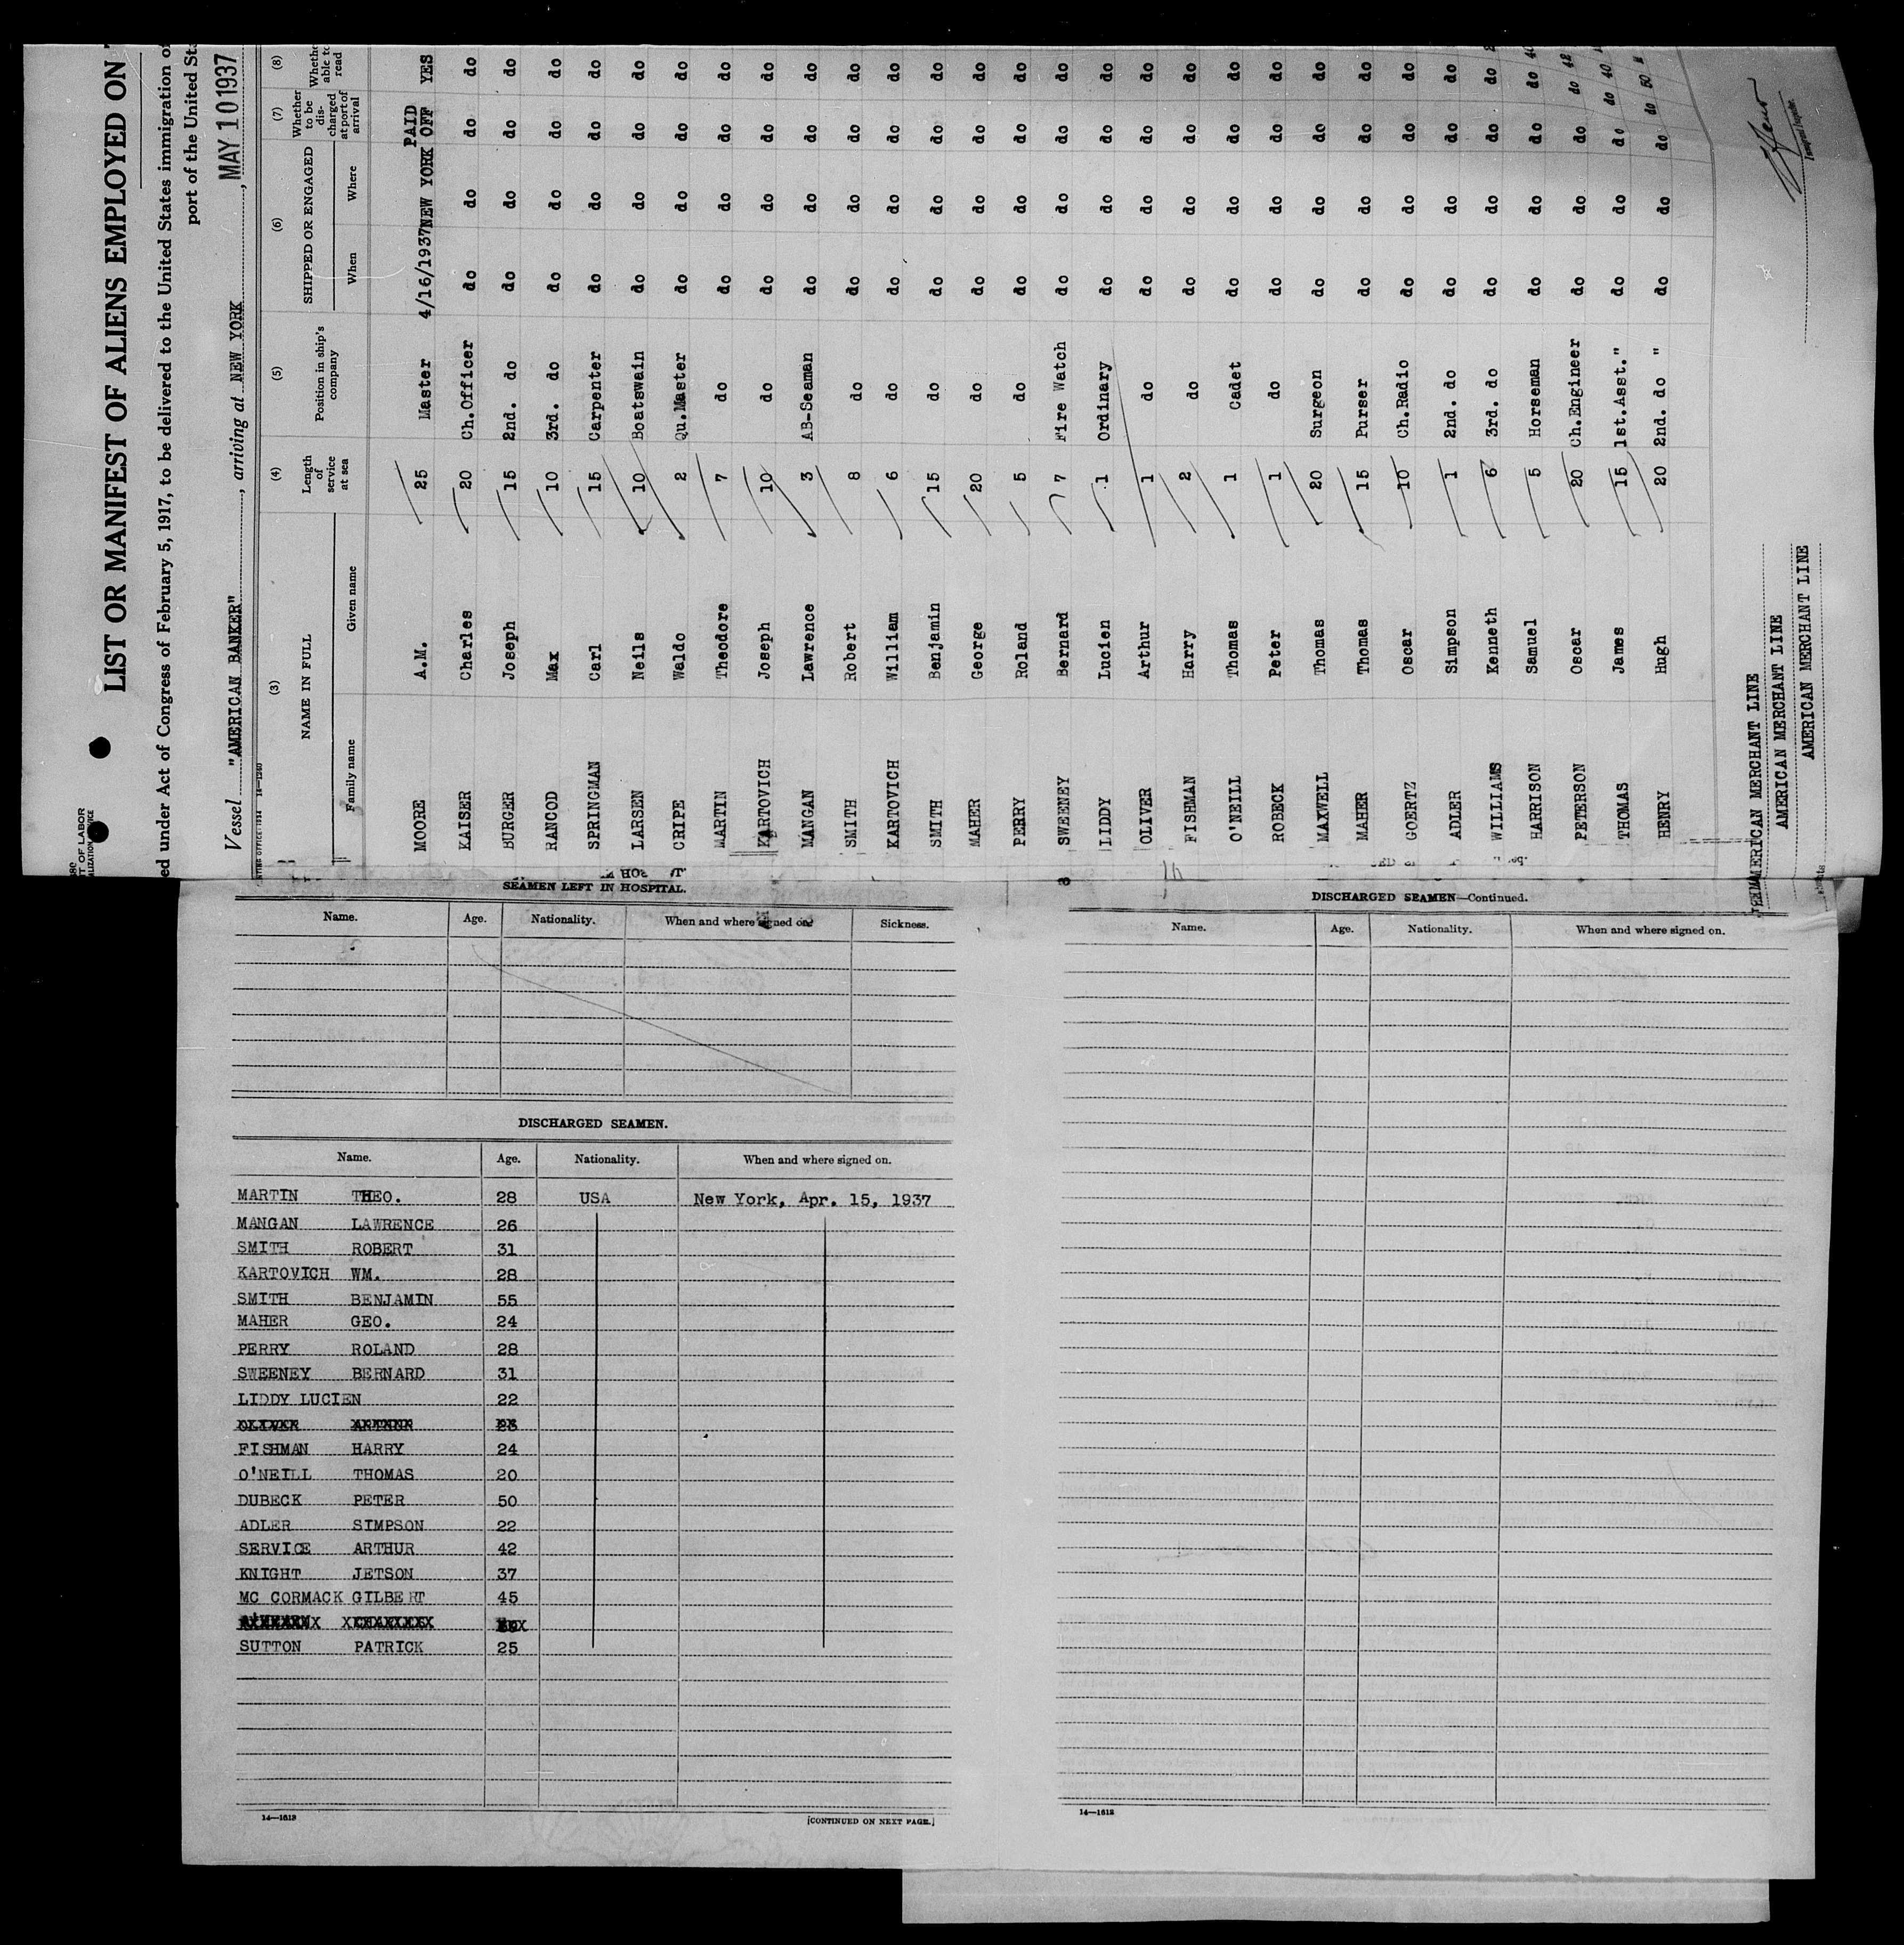 LIST OR MANIFEST OF ALIENS EMPLOYED ON
ed under Act of Congress of February 5, 1917, to be delivered to the United States immigration of
port of the United Sta
T OF LABOR
Vessel "AMERICAN BANKER", arriving at NEW YORK, MAY 10 1937
(3) (4) (5) (6) (7) (8)
NAME IN FULL Length of service at sea Position in ship's company SHIPPED OR ENGAGED Whether to be discharged at port of arrival Whethe able to read
Family name Given name When Where
MOORE A.M. 25 Master 4/16/1937 NEW YORK PAID OFF YES
KAISER Charles 20 Ch.Officer do do do do
BURGER Joseph 15 2nd. do do do do do
RANCOD Max 10 3rd. do do do do do
SPRINGMAN Carl 15 Carpenter do do do do
LARSEN Neils 10 Boatswain do do do do
CRIPE Waldo 2 Qu.Master do do do do
MARTIN Theodore 7 do do do do do
KARTOVICH Joseph 10 do do do do do
MANGAN Lawrence 3 AB-Seaman do do do do
SMITH Robert 8 do do do do do
KARTOVICH William 6 do do do do do
SMITH Benjamin 15 do do do do do
MAHER George 20 do do do do do
PERRY Roland 5 do do do do do
SWEENEY Bernard 7 Fire Watch do do do do
LIDDY Lucien 1 Ordinary do do do do
OLIVER Arthur 1 do do do do do
FISHMAN Harry 2 do do do do do
O'NEILL Thomas 1 Cadet do do do do
ROBECK Peter 1 do do do do do
MAXWELL Thomas 20 Surgeon do do do do
MAHER Thomas 15 Purser do do do do
GOERTZ Oscar 10 Ch.Radio do do do do
ADLER Simpson 1 2nd. do do do do do
WILLIAMS Kenneth 6 3rd. do do do do do
HARRISON Samuel 5 Horseman do do do do 40
PETERSON Oscar 20 Ch.Engineer do do do do 42
THOMAS James 15 1st.Asst." do do do do 40
HENRY Hugh 20 2nd. do " do do do do 50
AMERICAN MERCHANT LINE
AMERICAN MERCHANT LINE
AMERICAN MERCHANT LINE
SEAMEN LEFT IN HOSPITAL.
Name. Age. Nationality. When and where signed on. Sickness.
DISCHARGED SEAMEN.
Name. Age. Nationality. When and where signed on.
MARTIN THEO. 28 USA New York, Apr. 15, 1937
MANGAN LAWRENCE 26
SMITH ROBERT 31
KARTOVICH WM. 28
SMITH BENJAMIN 55
MAHER GEO. 24
PERRY ROLAND 28
SWEENEY BERNARD 31
LIDDY LUCIEN 22
FISHMAN HARRY 24
O'NEILL THOMAS 20
DUBECK PETER 50
ADLER SIMPSON 22
SERVICE ARTHUR 42
KNIGHT JETSON 37
MC CORMACK GILBERT 45
SUTTON PATRICK 25
14—1613
[CONTINUED ON NEXT PAGE.]
DISCHARGED SEAMEN—Continued.
Name. Age. Nationality. When and where signed on.
14—1613